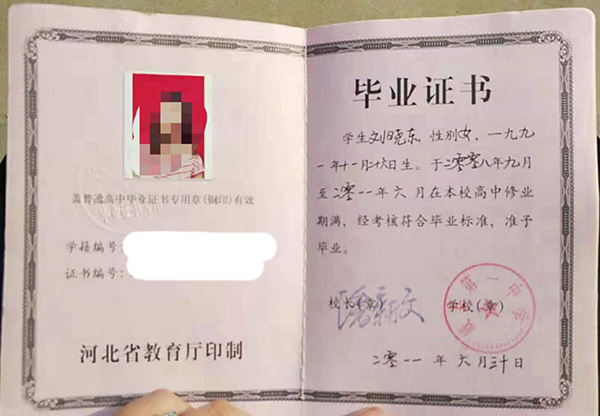 盖普通高中毕业证书专用章(钢印)有效
学籍编号:
证书编号:
河北省教育厅印制
毕业证书
学生刘晓东, 性别女, 一九九
一年十一月二十六日生。于二〇〇八年九月
至二〇一一年六月在本校高中修业
期满, 经考核符合毕业标准, 准予
毕业。
校长(章)
学校(章)
第一中学
二〇一一年六月三十日